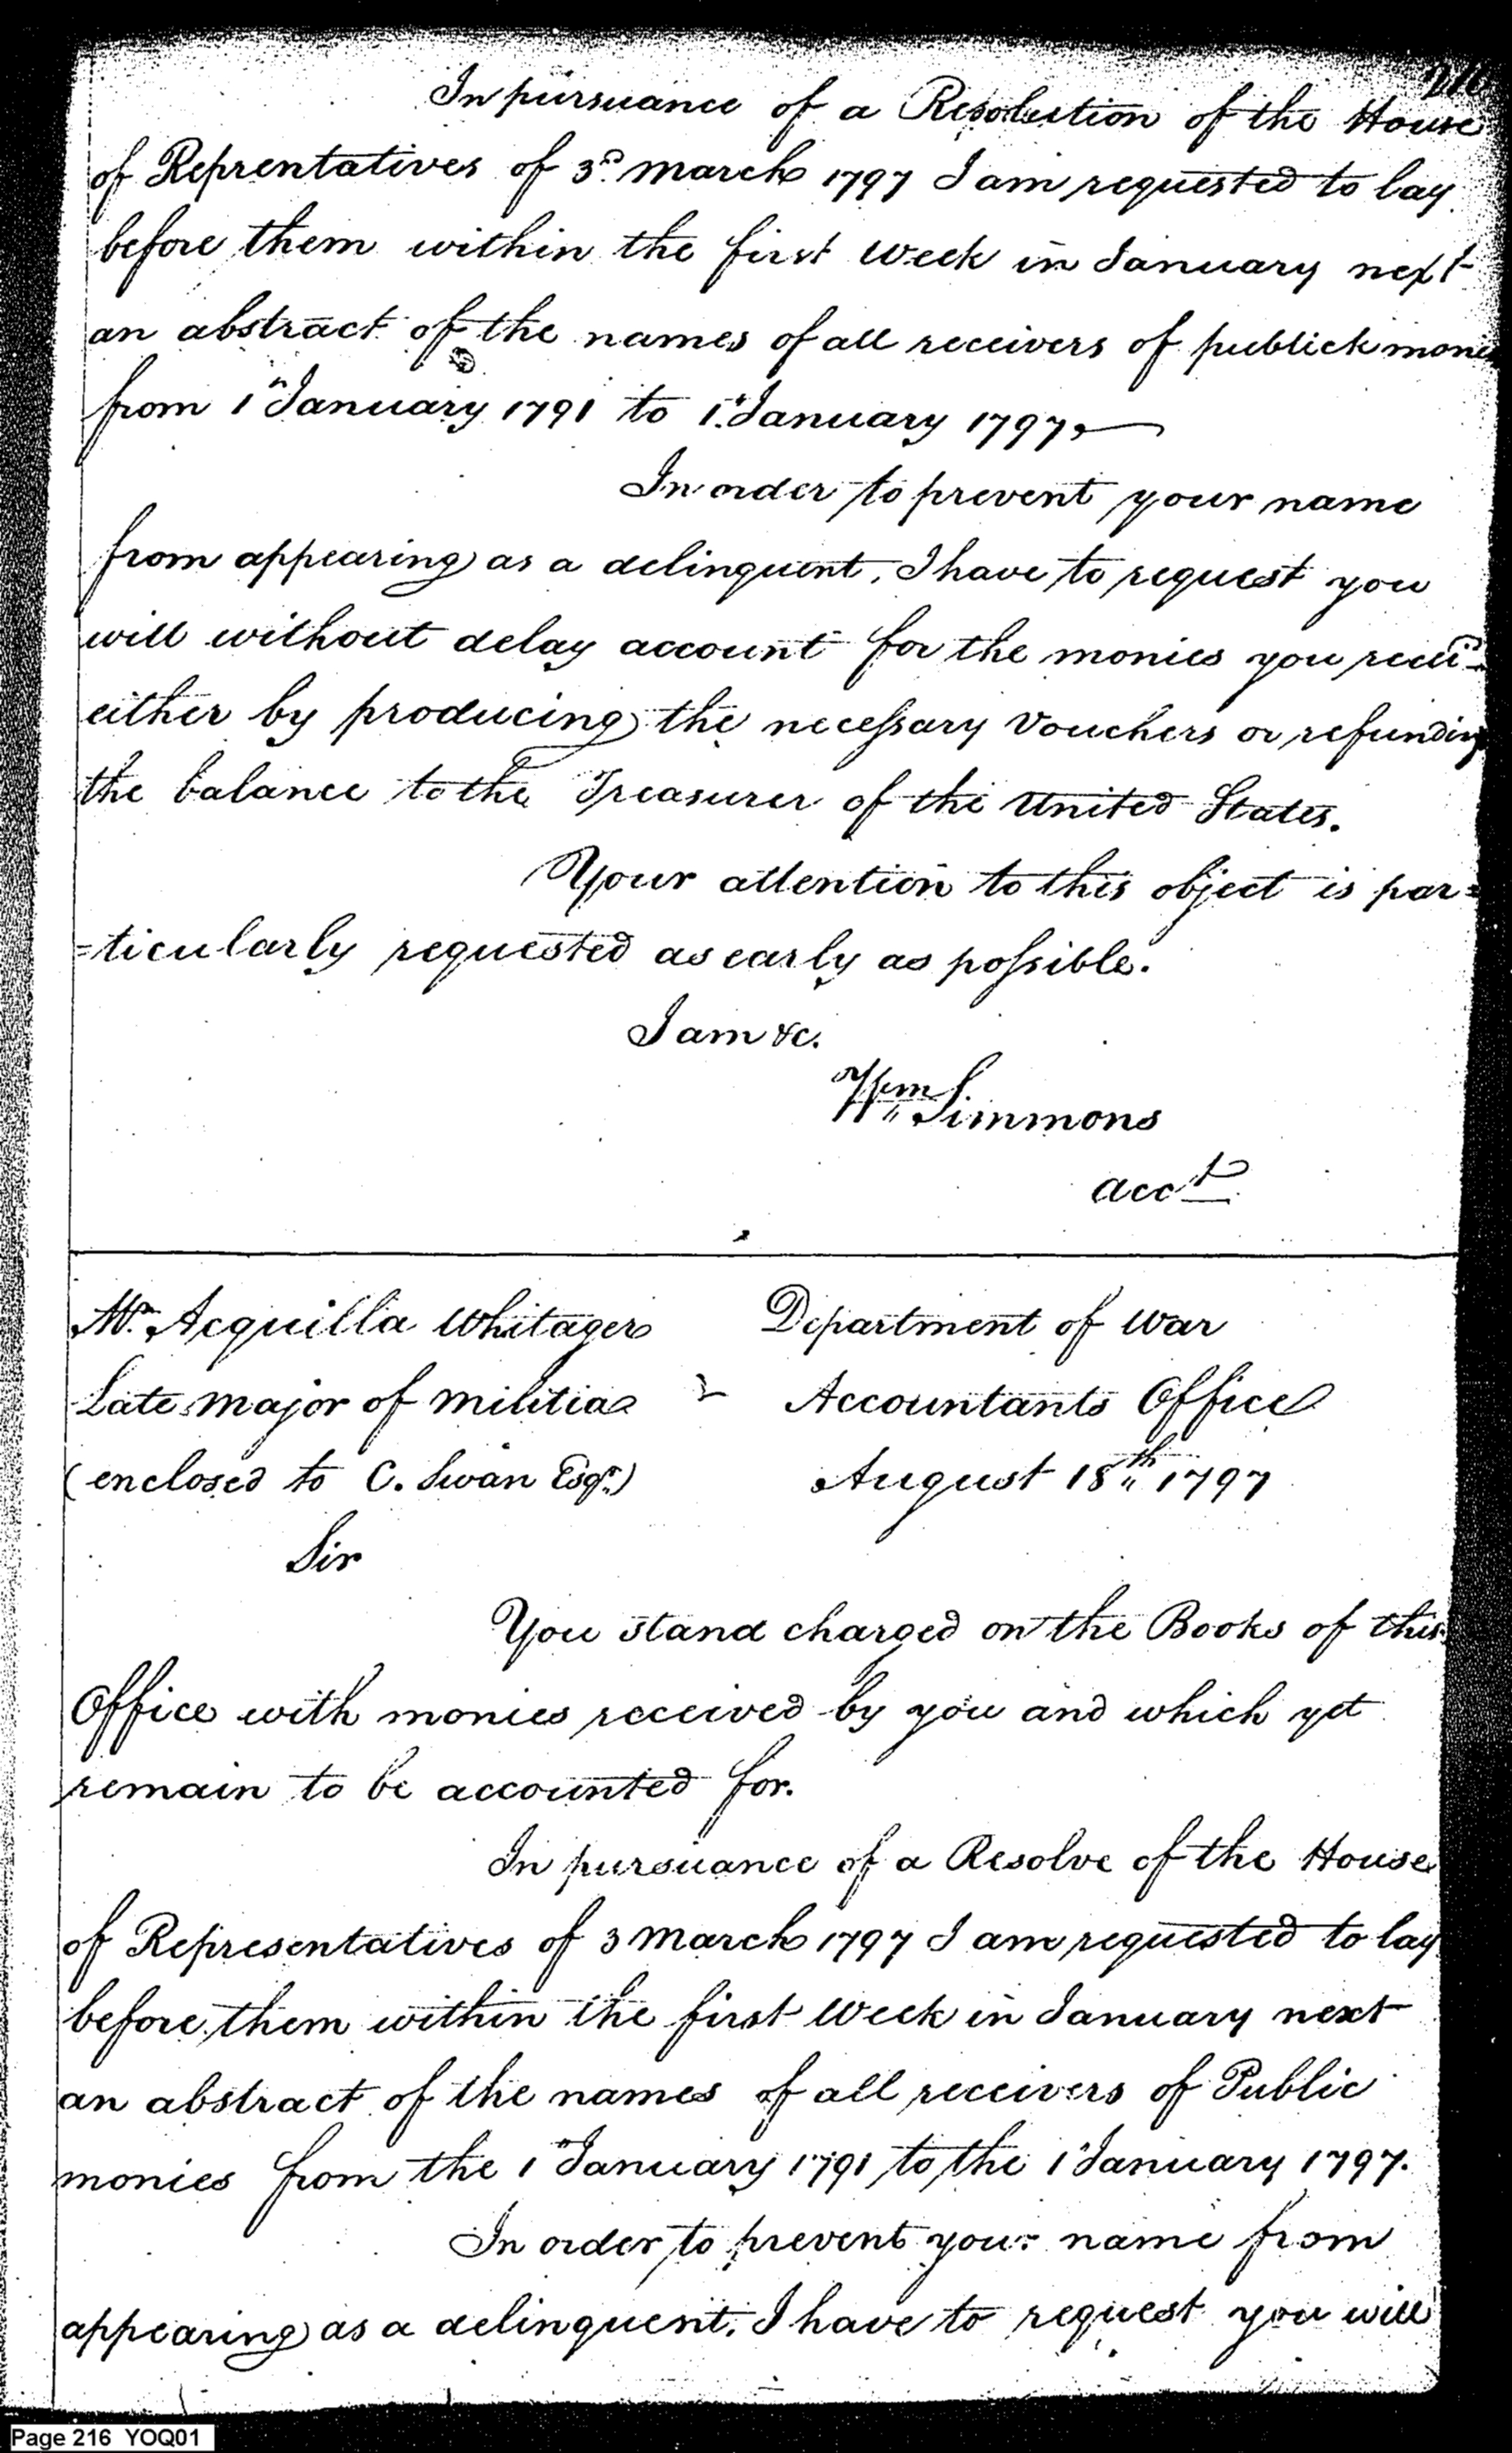 216
In pursuance of a Resolution of the House
of Reprentatives of 3d. March 1797 I am requested to lay
before them within the first Week in January next
an abstract of the names of all receivers of publick mone
from 1st January 1791 to 1st January 1797,
In order to prevent your name
from appearing as a delinquent, I have to request you
will without delay account for the monies you recd.
either by producing the necessary Vouchers or refunding
the balance to the Treasurer of the United States.
Your attention to this object is par=
=ticularly requested as early as possible.
I am &c.
Wm Simmons
acct.
Mr. Acquilla Whitager
Late Major of Militia
(enclosed to C. Swan Esqr.)
Department of War
Accountants Office
August 18th 1797
Sir
You stand charged on the Books of this
Office with monies received by you and which yet
remain to be accounted for.
In pursuance of a Resolve of the House
of Representatives of 3 March 1797 I am requested to lay
before them within the first Week in January next
an abstract of the names of all receivers of Public
monies from the 1st January 1791 to the 1st January 1797.
In order to prevent your name from
appearing as a delinquent, I have to request you will
Page 216 YOQ01